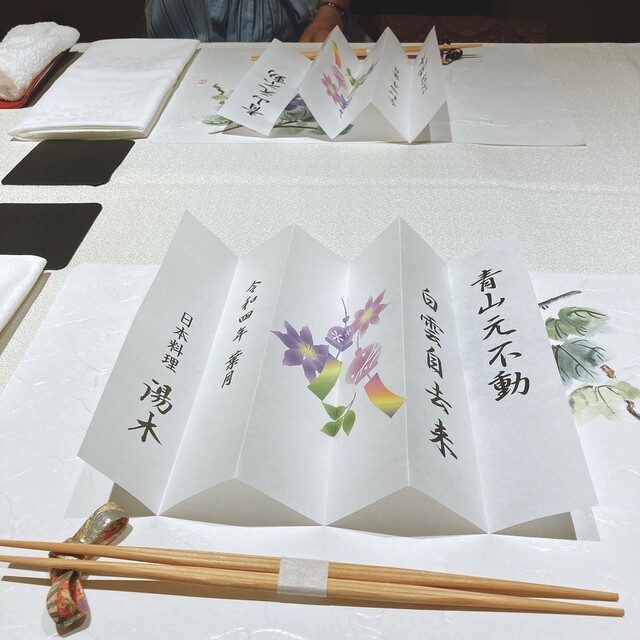 青山元不動
白雲自去来
令和四年 葉月
日本料理 湯木
青山元不動